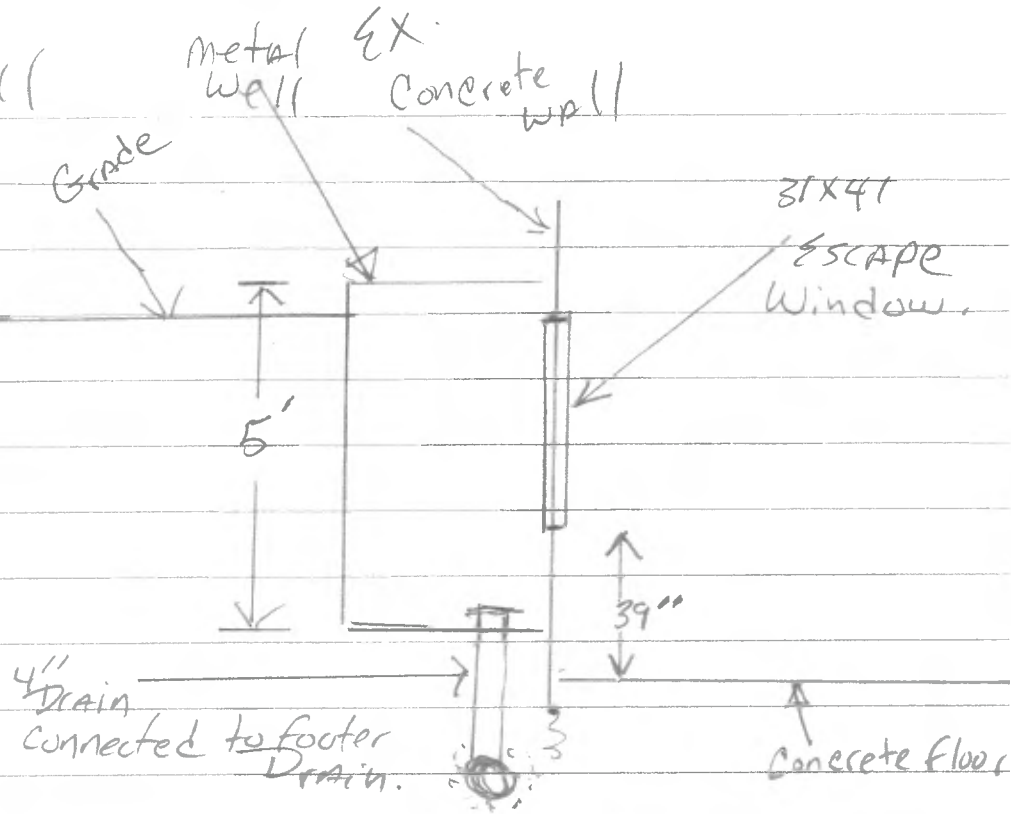 ll
metal
Well
EX.
Concrete
wall
Grade
31X41
Escape
Window.
5'
39"
4"
Drain
connected to footer
Drain.
Concrete floor